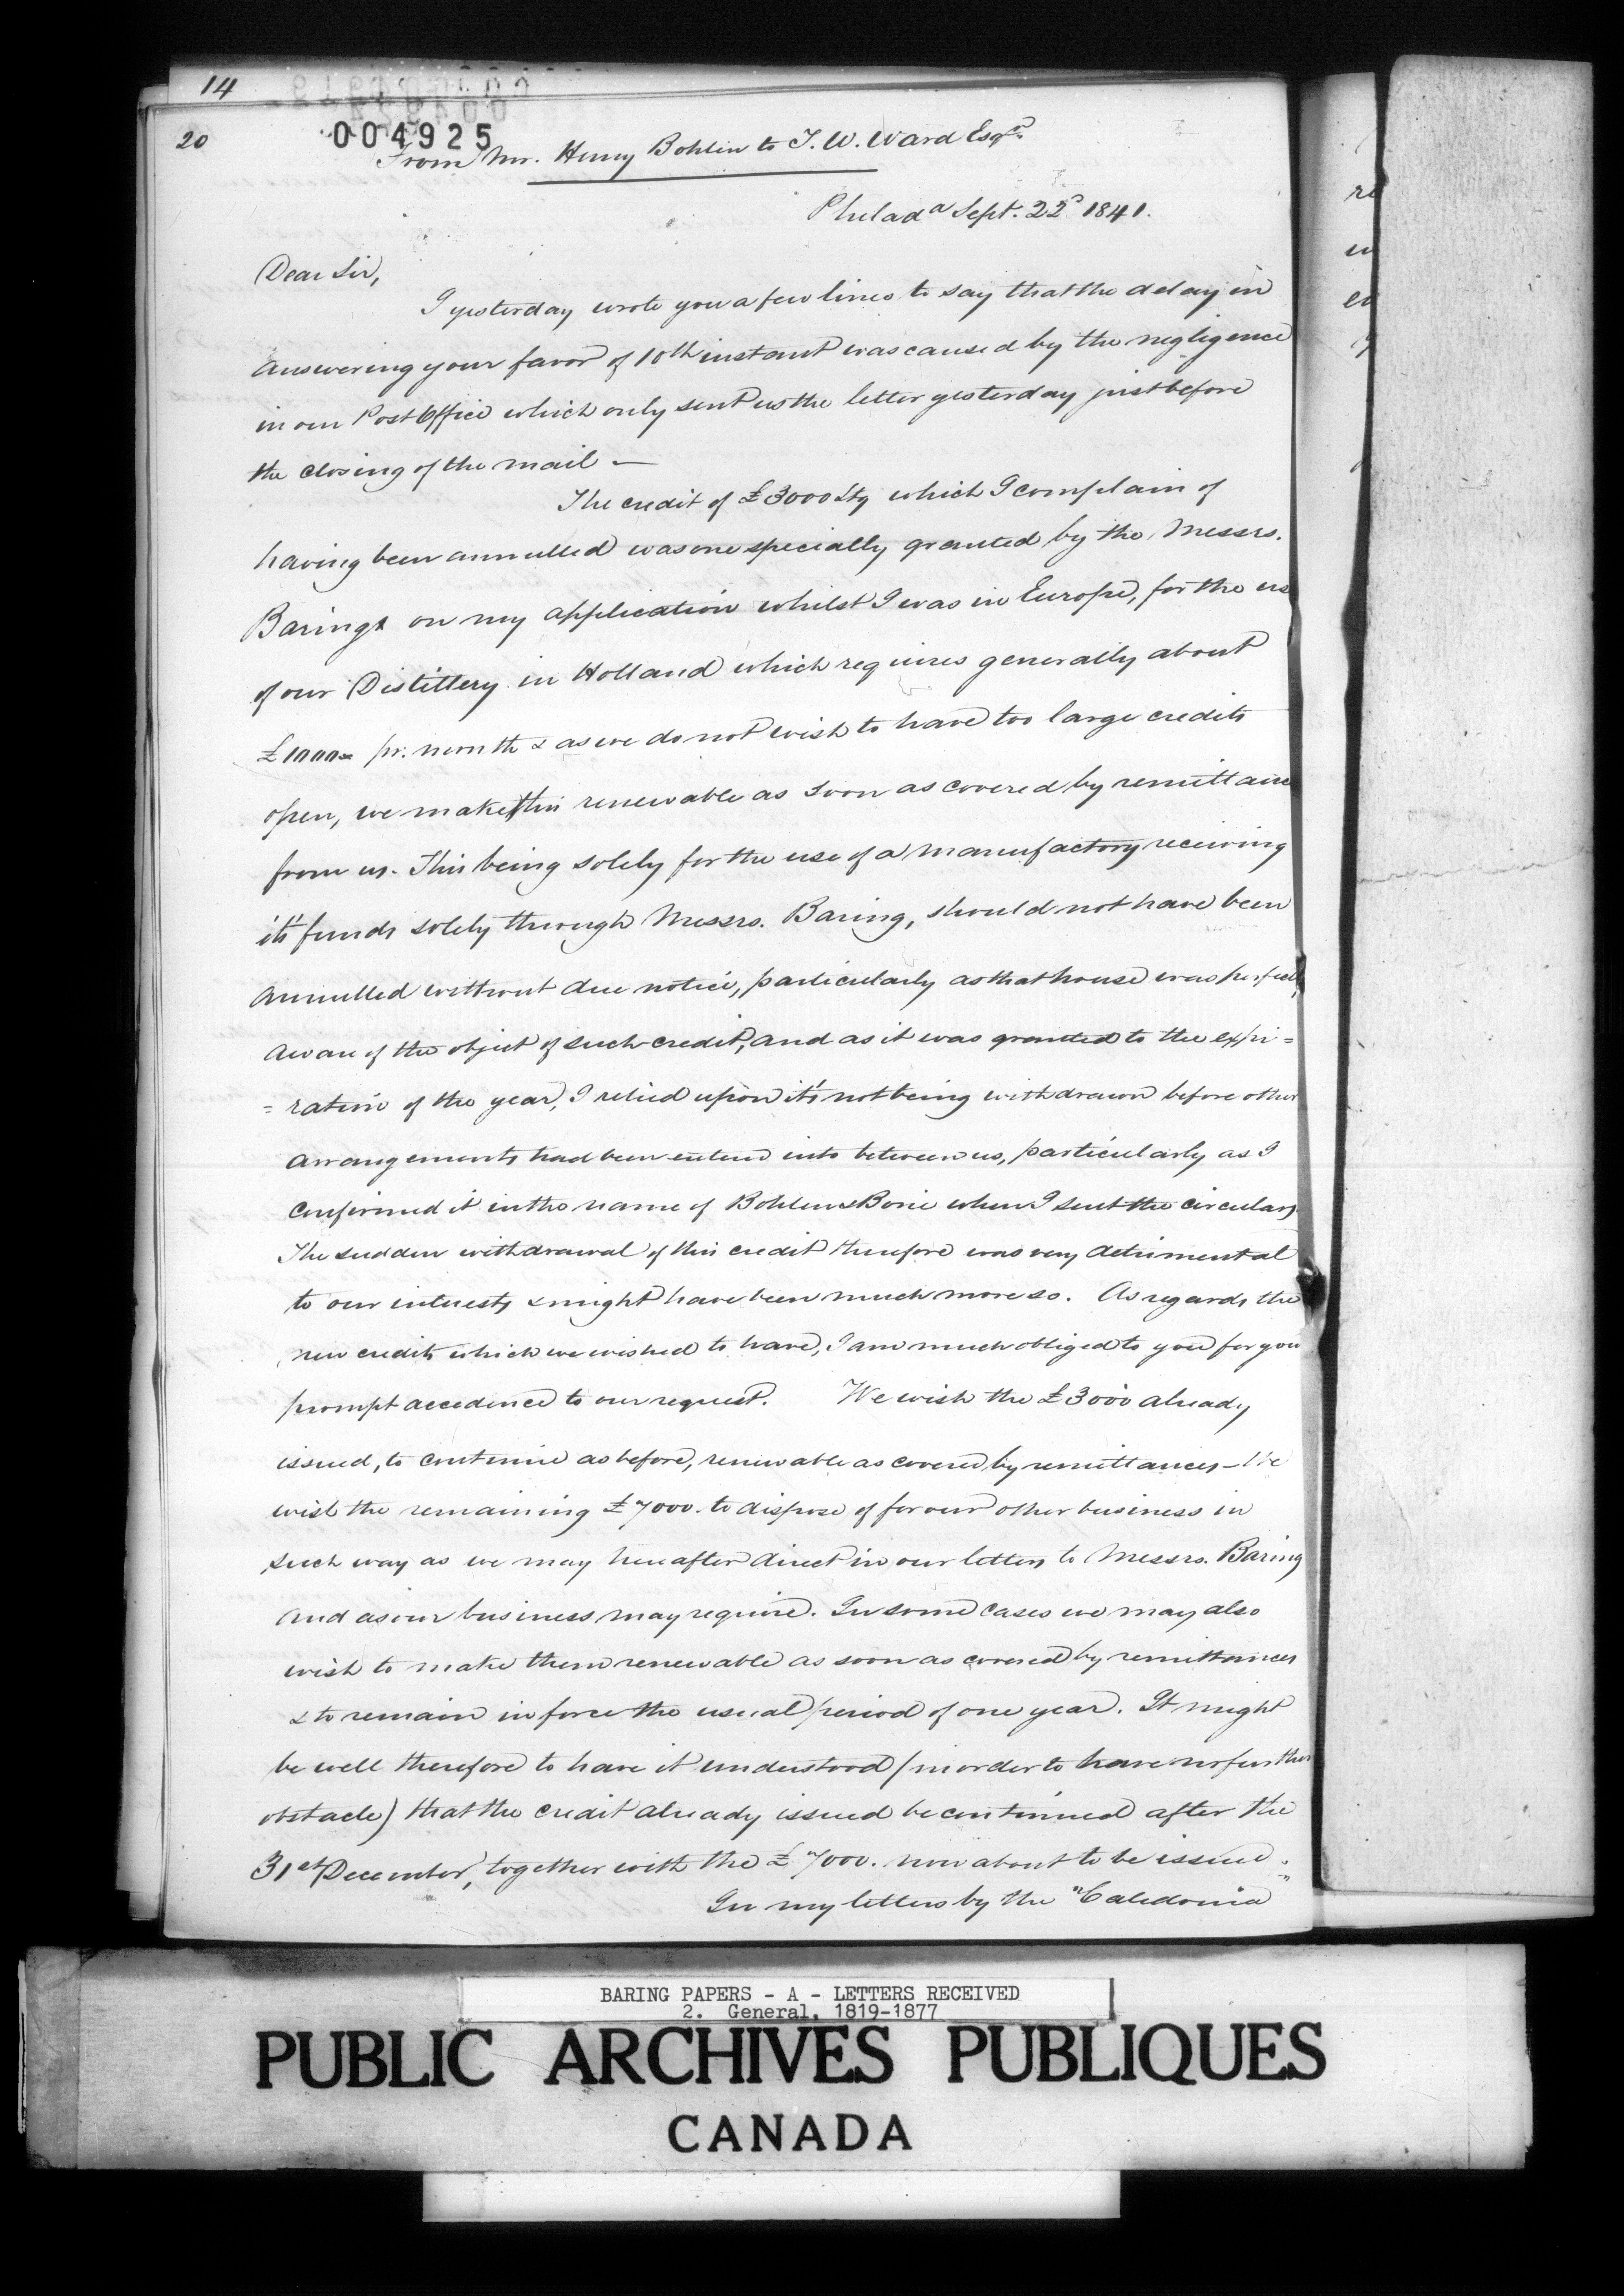 14
20
004925
From Mr. Henry Bohlen to T. W. Ward Esqre.
Philada Sept. 22d 1841.
Dear Sir,
I yesterday wrote you a few lines to say that the delay in
answering your favor of 10th instant was caused by the negligence
in our Post Office which only sent us the letter yesterday just before
the closing of the mail —
The credit of £3000 Stg which I complain of
having been annulled was one specially granted by the Messrs.
Barings on my application whilst I was in Europe, for the use
of our Distillery in Holland which requires generally about
£1000 pr. month & as we do not wish to have too large credits
open, we make this renewable as soon as covered by remittance
from us. This being solely for the use of a manufactory receiving
it's funds solely through Messrs. Baring, should not have been
annulled without due notice, particularly as that house was perfectly
aware of the object of such credit, and as it was granted to the expi=
=ration of the year, I relied upon it's not being withdrawn before other
arrangements had been entered into between us, particularly as I
confirmed it in the name of Bohlen & Borie when I sent the circulars.
The sudden withdrawal of this credit therefore was very detrimental
to our interests & might have been much more so. As regards the
new credits which we wished to have, I am much obliged to you for your
prompt accedence to our request. We wish the £3000 already
issued, to continue as before, renewable as covered by remittances — We
wish the remaining £7000. to dispose of for our other business in
such way as we may hereafter direct in our letters to Messrs. Baring
and as our business may require. In some cases we may also
wish to make them renewable as soon as covered by remittances
& to remain in force the usual period of one year. It might
be well therefore to have it understood (in order to have no further
obstacle) that the credit already issued be continued after the
31st December, together with the £7000. now about to be issued.
In my letters by the "Caledonia"
BARING PAPERS - A - LETTERS RECEIVED
2. General, 1819-1877
PUBLIC ARCHIVES PUBLIQUES
CANADA